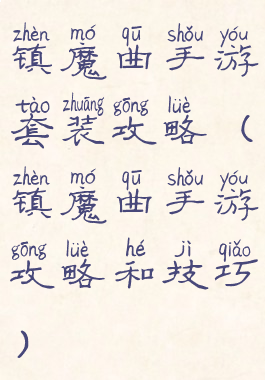 zhèn mó qū shǒu yóu
镇魔曲手游
tào zhuāng gōng lüè
套装攻略（
zhèn mó qū shǒu yóu
镇魔曲手游
gōng lüè hé jì qiǎo
攻略和技巧
）